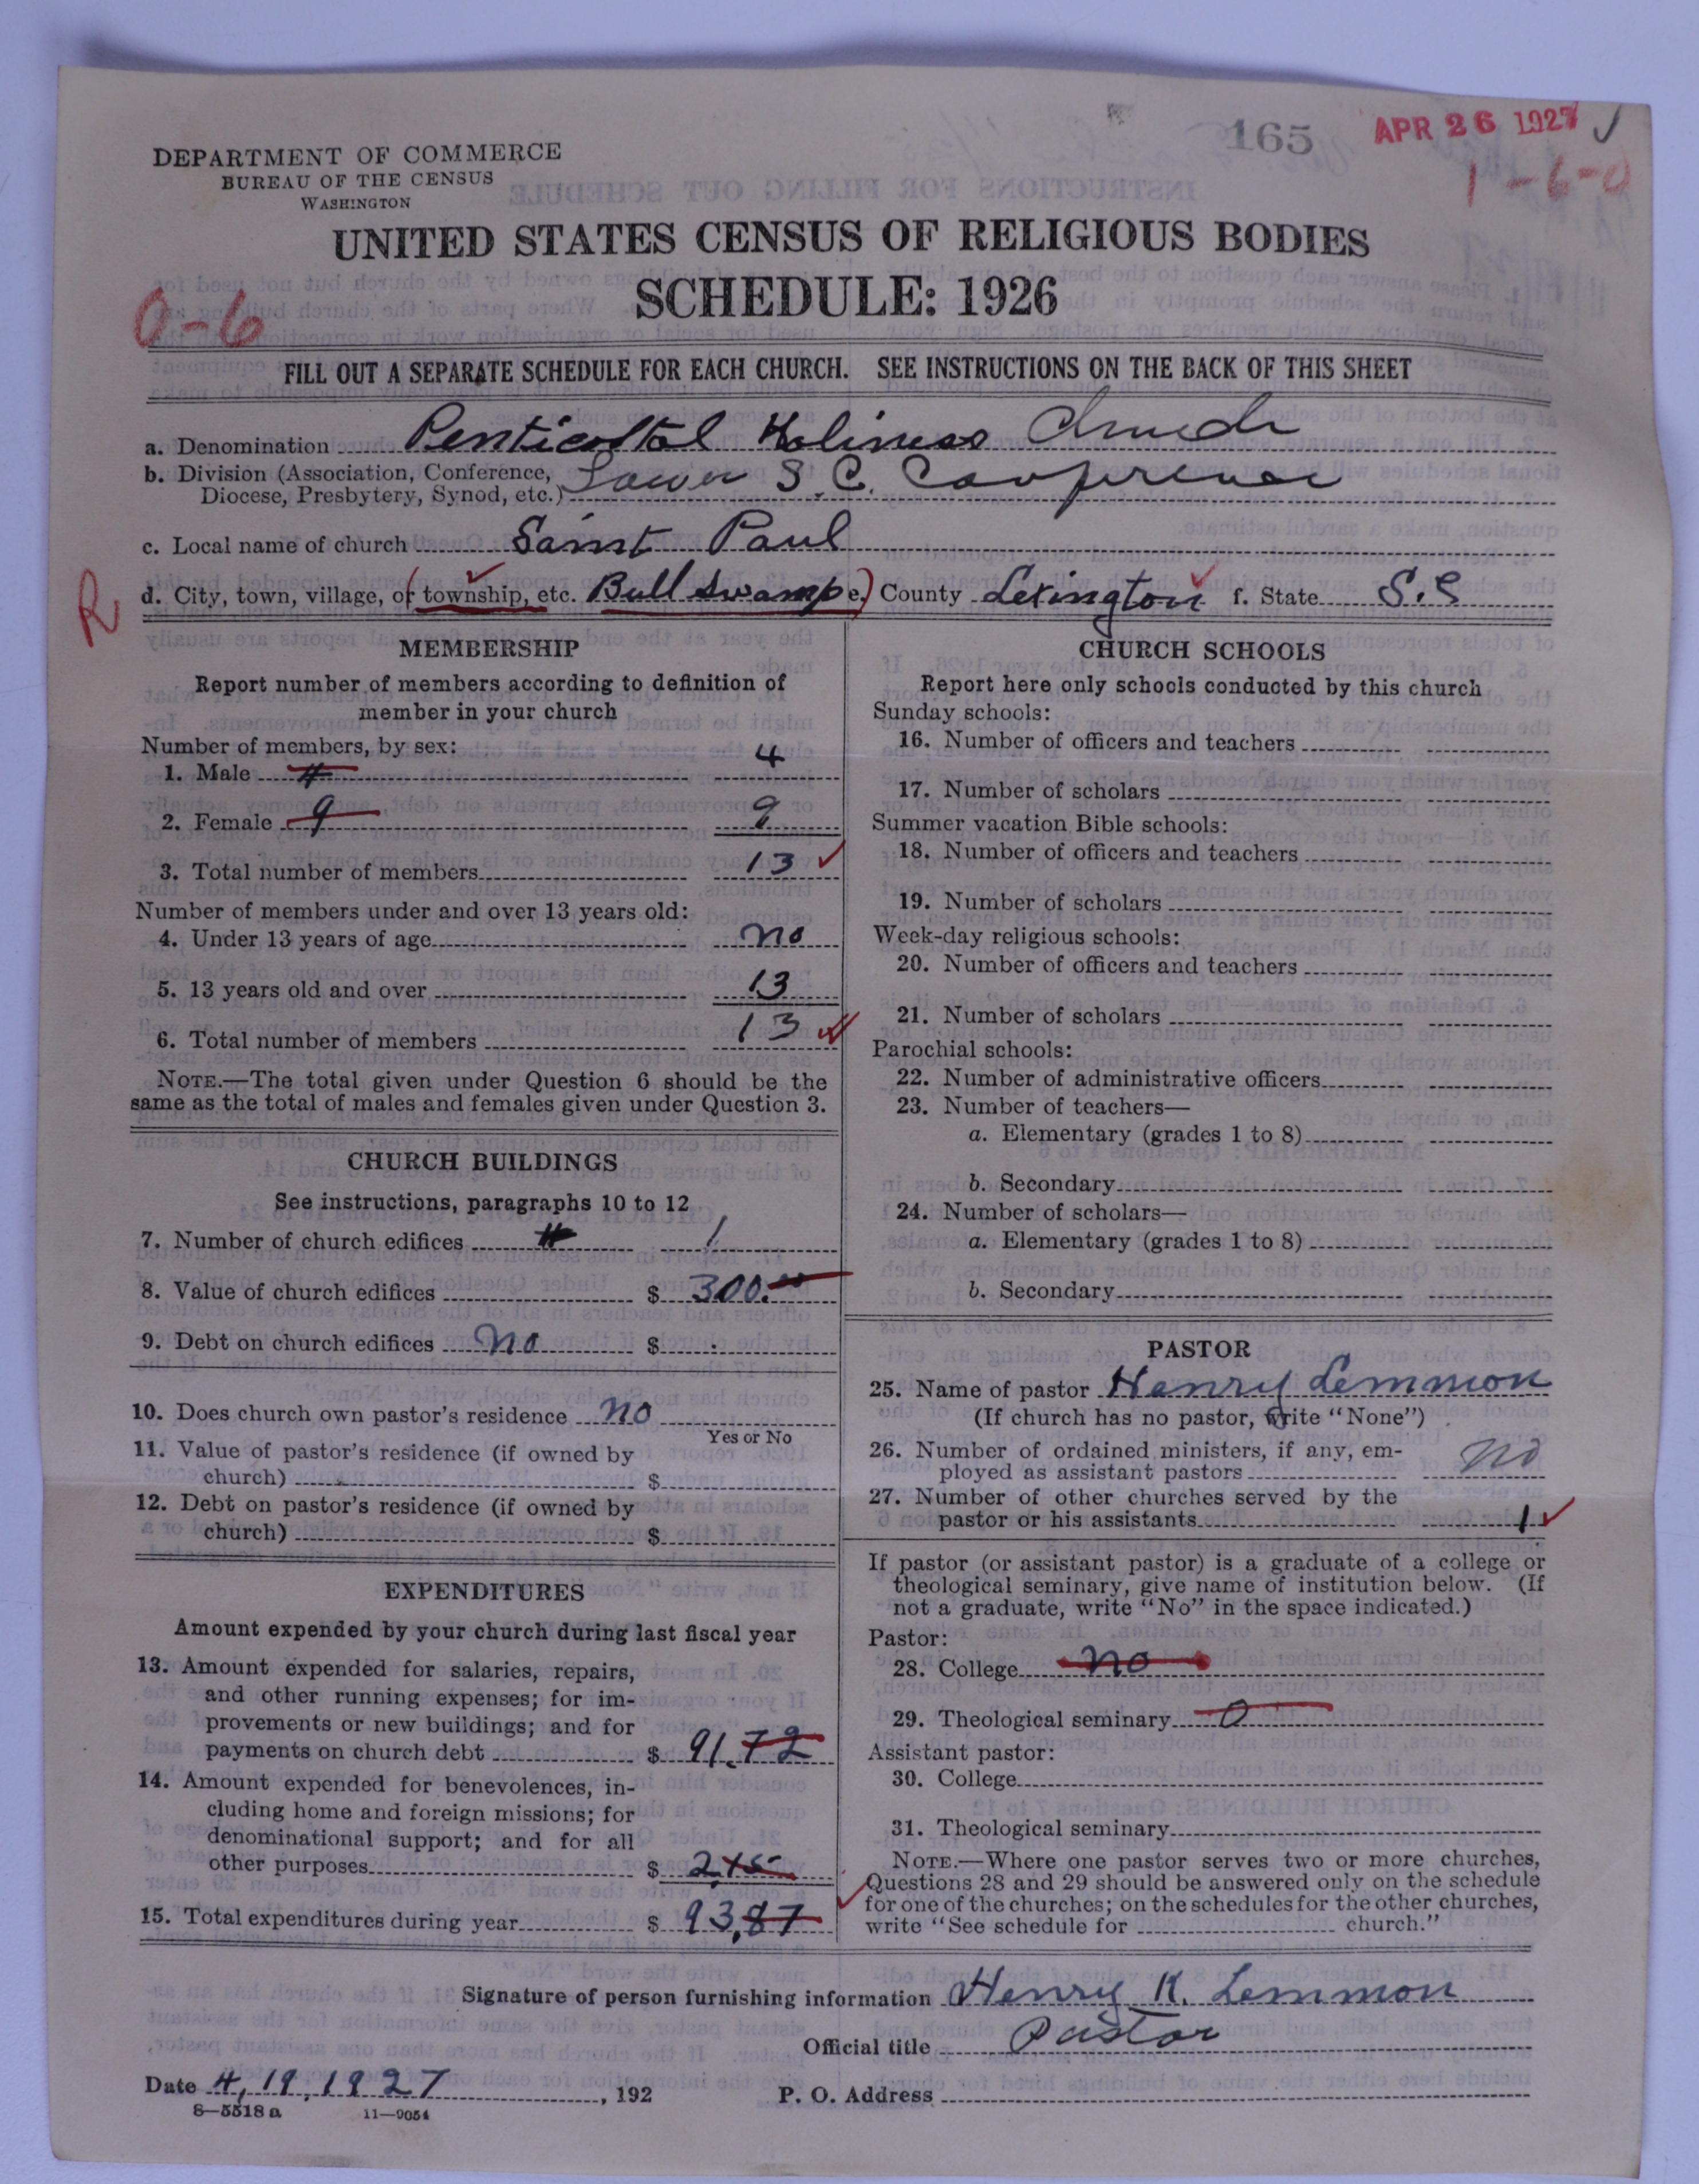 165
APR 26 1927
1-6-0
DEPARTMENT OF COMMERCE
BUREAU OF THE CENSUS
WASHINGTON
UNITED STATES CENSUS OF RELIGIOUS BODIES
SCHEDULE: 1926
0-6
FILL OUT A SEPARATE SCHEDULE FOR EACH CHURCH. SEE INSTRUCTIONS ON THE BACK OF THIS SHEET
a. Denomination Penticostal Holiness Church
b. Division (Association, Conference, Diocese, Presbytery, Synod, etc.) Lower S.C. Conference
c. Local name of church Saint Paul
R
d. City, town, village, or township, etc. Bull Swamp e. County Lexington f. State S.C
MEMBERSHIP
Report number of members according to definition of
member in your church
Number of members, by sex:
1. Male 4 4
2. Female 9 9
3. Total number of members 13
Number of members under and over 13 years old:
4. Under 13 years of age no
5. 13 years old and over 13
6. Total number of members 13
NOTE.—The total given under Question 6 should be the
same as the total of males and females given under Question 3.
CHURCH BUILDINGS
See instructions, paragraphs 10 to 12
7. Number of church edifices 1
8. Value of church edifices $ 300.00
9. Debt on church edifices no $
10. Does church own pastor's residence no
Yes or No
11. Value of pastor's residence (if owned by
church) $
12. Debt on pastor's residence (if owned by
church) $
EXPENDITURES
Amount expended by your church during last fiscal year
13. Amount expended for salaries, repairs,
and other running expenses; for im-
provements or new buildings; and for
payments on church debt $ 91.72
14. Amount expended for benevolences, in-
cluding home and foreign missions; for
denominational support; and for all
other purposes $ 2.15
15. Total expenditures during year $ 93,87
CHURCH SCHOOLS
Report here only schools conducted by this church
Sunday schools:
16. Number of officers and teachers
17. Number of scholars
Summer vacation Bible schools:
18. Number of officers and teachers
19. Number of scholars
Week-day religious schools:
20. Number of officers and teachers
21. Number of scholars
Parochial schools:
22. Number of administrative officers
23. Number of teachers—
a. Elementary (grades 1 to 8)
b. Secondary
24. Number of scholars—
a. Elementary (grades 1 to 8)
b. Secondary
PASTOR
25. Name of pastor Henry Lemmon
(If church has no pastor, write "None")
26. Number of ordained ministers, if any, em-
ployed as assistant pastors no
27. Number of other churches served by the
pastor or his assistants 1
If pastor (or assistant pastor) is a graduate of a college or
theological seminary, give name of institution below. (If
not a graduate, write "No" in the space indicated.)
Pastor:
28. College no
29. Theological seminary 0
Assistant pastor:
30. College
31. Theological seminary
NOTE.—Where one pastor serves two or more churches,
Questions 28 and 29 should be answered only on the schedule
for one of the churches; on the schedules for the other churches,
write "See schedule for church."
Signature of person furnishing information Henry K. Lemmon
Official title Pastor
Date 4,19,1927, 192
P. O. Address
8—5518 a 11—9054